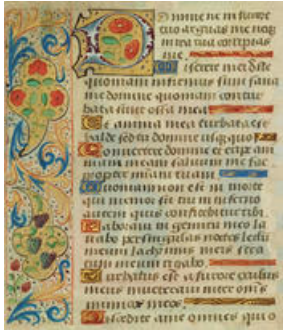 Domine ne in furore
tuo arguas me neq
in ira tua corripias
me
iserere mei dñe
quoniam infirmus sum sana
me domine quoniam contur
bata sunt ossa mea
Et anima mea turbata est
valde sed tu domine usquequo
Convertere domine et eripe ani
mam meam salvum me fac
propter miam tuam
Quoniam non est in morte
qui memor sit tui in inferno
autem quis confitebitur tibi
Laboravi in gemitu meo la
vabo per singulas noctes lectū
meum lachrymis meis stra
tum meum rigabo
Turbatus est a furore oculus
meus inveteravi inter omīs
inimicos meos
iscedite a me omnes qui o